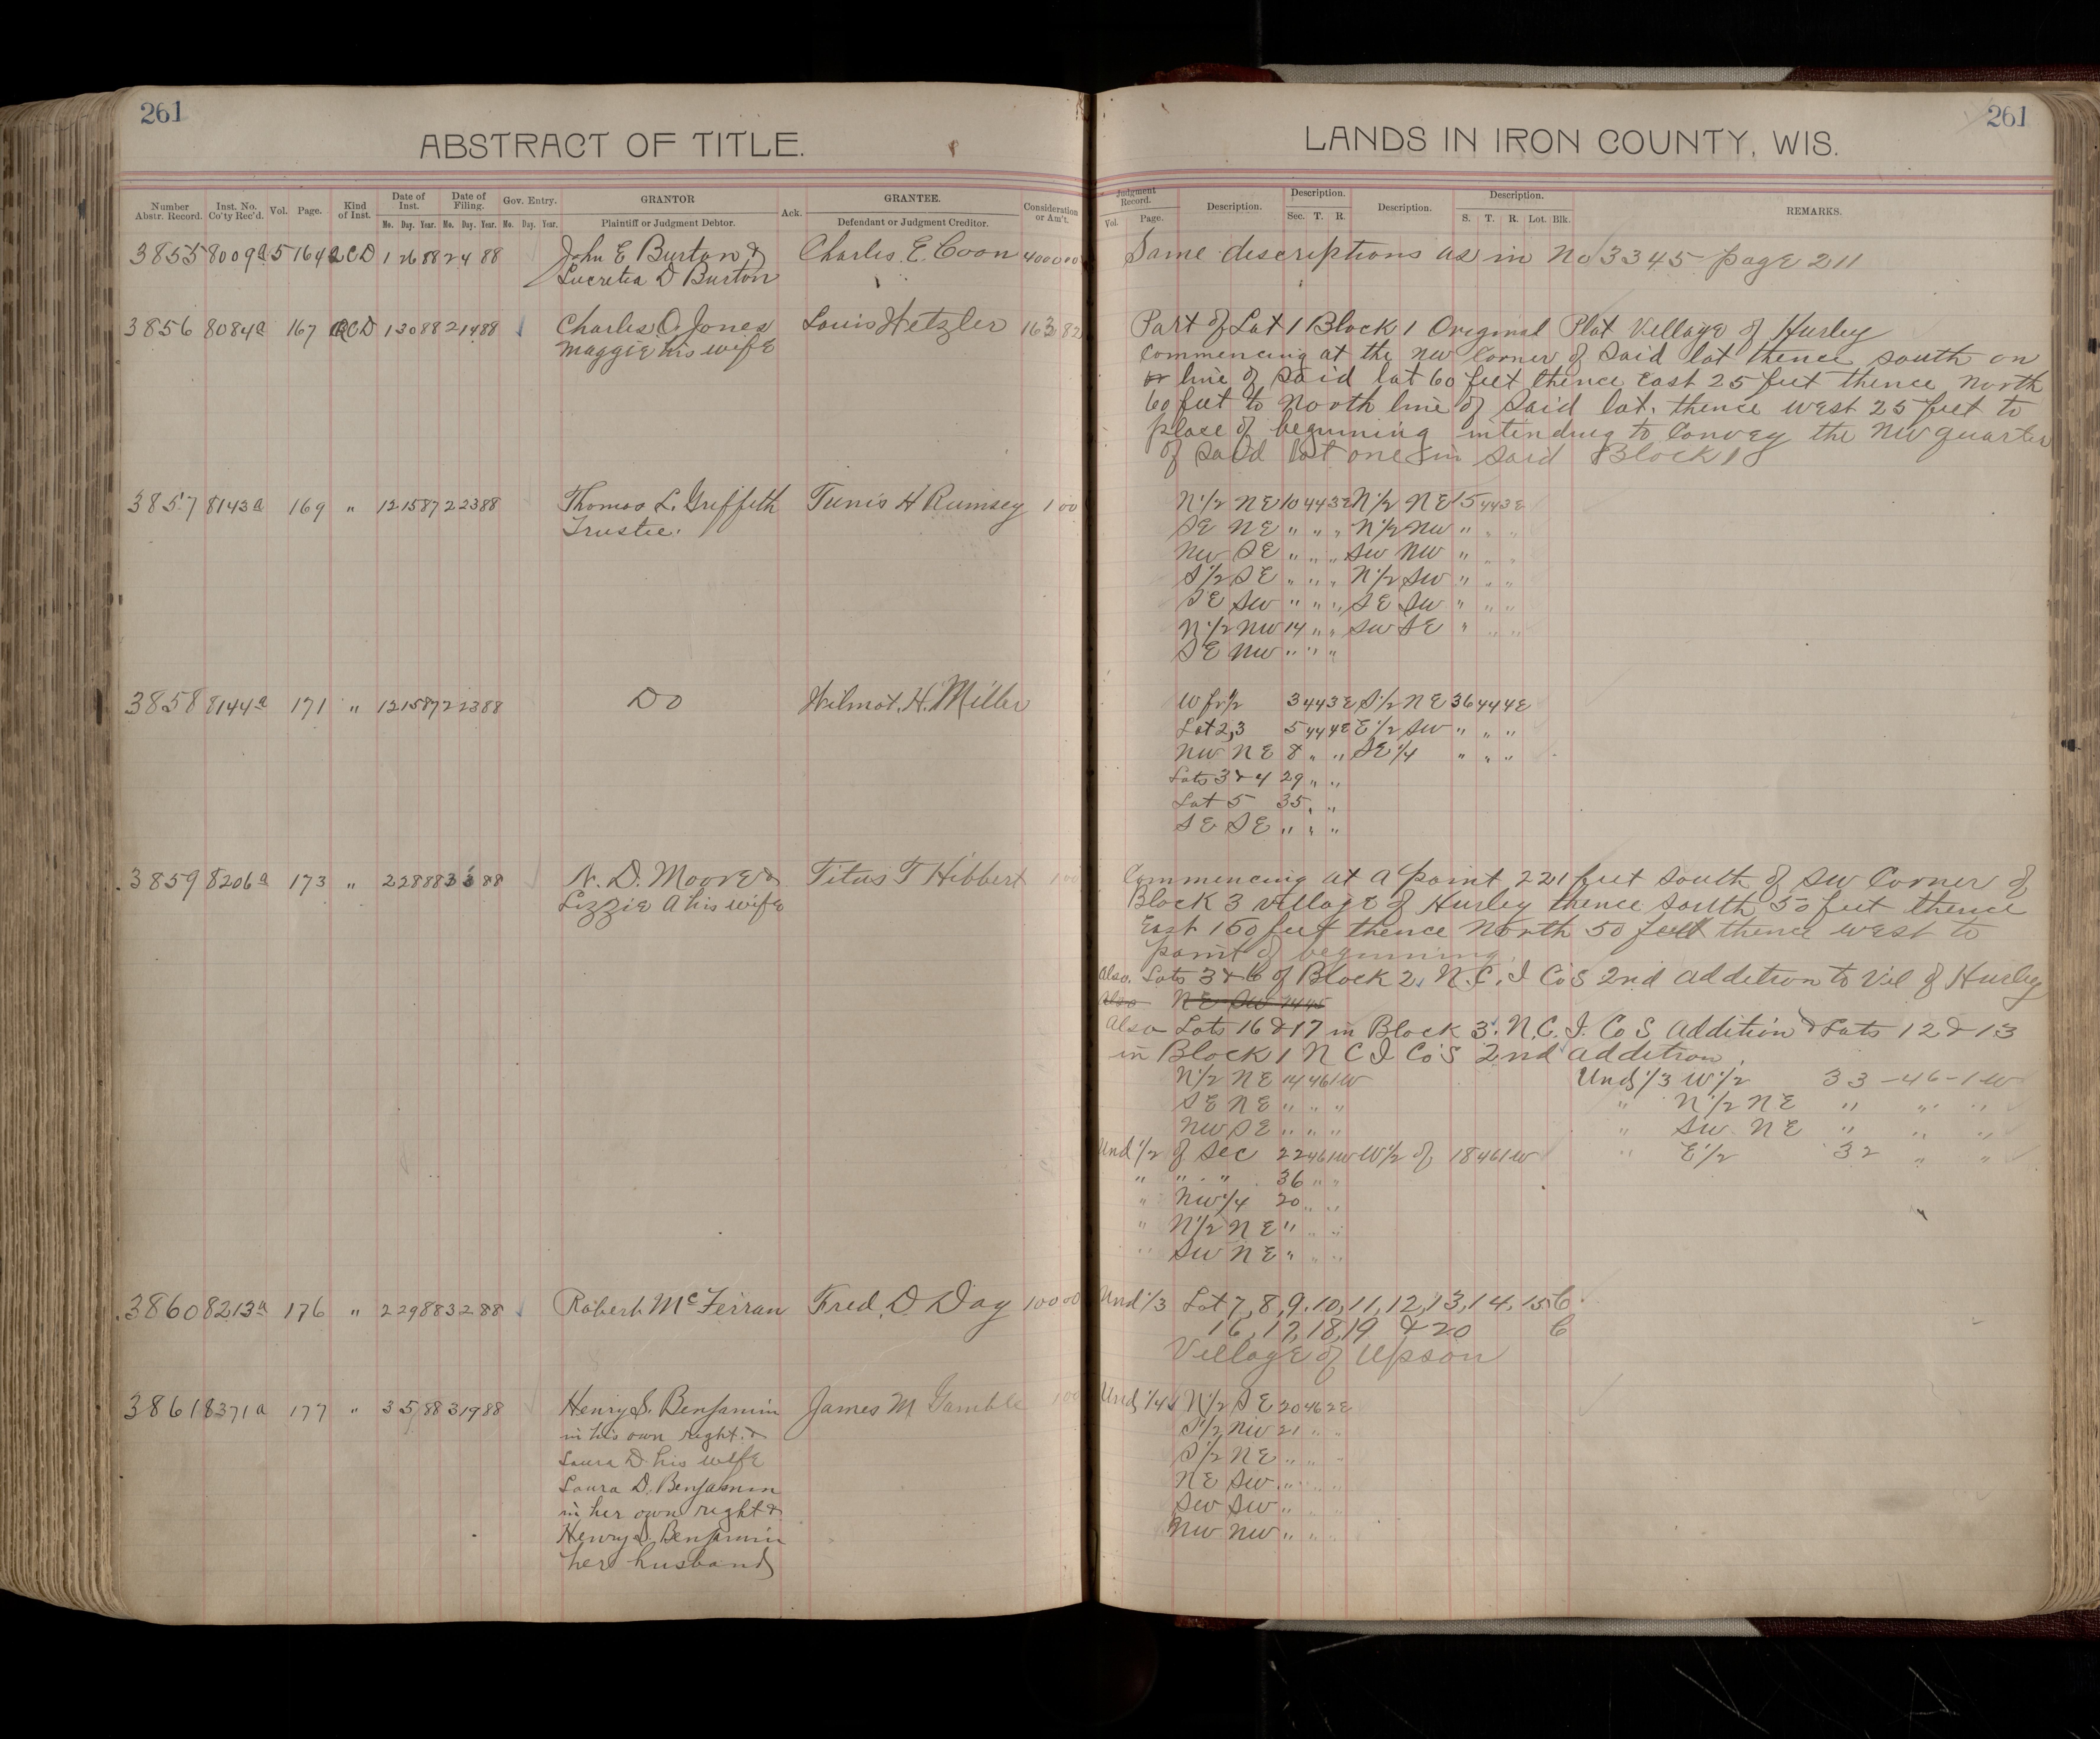 261
ABSTRACT OF TITLE.
Number Abstr. Record. Inst. No. Co'ty Rec'd. Vol. Page. Kind of Inst. Date of Inst. Mo. Day. Year. Date of Filing. Mo. Day. Year. Gov. Entry. Mo. Day. Year. GRANTOR Plaintiff or Judgment Debtor. Ack. GRANTEE. Defendant or Judgment Creditor. Consideration or Am't.
3855 8009a 5 164 QCD 1 26 88 2 4 88 John E Burton & Charles E. Coon 4000 00
Lucretia D Burton
3856 8084a 167 QCD 1 30 88 2 14 88 Charles O Jones Louis Hetzler 163 82
Maggie his wife
3857 8143a 169 " 12 15 87 2 23 88 Thomas L. Griffeth Tunis H Rumsey 1 00
Trustee.
3858 8144a 171 " 12 15 87 2 23 88 Do Wilmot. H. Miller
3859 8206a 173 " 2 28 88 3 3 88 N. D. Moore & Titus T Hibbert 1 00
Lizzie A his wife
3860 8213a 176 " 2 29 88 3 2 88 Robert McFerran Fred. D Day 100 00
3861 8371a 177 " 3 5 88 3 19 88 Henry S. Benjamin James M Gamble 1 00
in his own right &
Laura D his wife
Laura D. Benjamin
in her own right &
Henry S. Benjamin
her husband
261
LANDS IN IRON COUNTY, WIS.
Judgment Record. Vol. Page. Description. Description. Sec. T. R. Description. Description. S. T. R. Lot. Blk. REMARKS.
Same descriptions as in No 3345 page 211
Part of Lot 1 Block 1 Original Plat Village of Hurley
Commencing at the NW Corner of Said lot thence south on
or line of said lot 60 feet thence East 25 feet thence North
60 feet to North line of Said lot. thence west 25 feet to
place of beginning intending to Convey the NW quarter
of said lot one in said Block 1
N 1/2 NE 10 44 3E N 1/2 NE 15 44 3E
SE NE " " " N 1/2 NW " " "
NW SE " " " SW NW " " "
S 1/2 SE " " " N 1/2 SW " " "
SE SW " " " SE SW " " "
N 1/2 NW 14 " " SW SE " " "
SE NW " " "
W fr 1/2 3 44 3E S 1/2 NE 36 44 4E
Lot 2,3 5 44 4E E 1/2 SW " " "
NW NE 8 " " SE 1/4 " " "
Lots 3 & 4 29 " "
Lot 5 35 " "
SE SE " " "
Commencing at a point 221 feet south of SW Corner of
Block 3 village of Hurley thence south 50 feet thence
East 150 feet thence North 50 feet thence west to
point of beginning.
Also. Lots 3 & 6 of Block 2. N.C.I Co's 2nd addition to Vil of Hurley
Also NE SW 14 45
Also Lots 16 & 17 in Block 3. N.C.I. Co S addition & Lots 12 & 13
in Block 1 N C I Co's 2nd addition.
N 1/2 NE 14 46 1W Und 1/3 W 1/2 33-46-1W
SE NE " " " " N 1/2 NE " " "
NW SE " " " " SW NE " " "
Und 1/2 of Sec 22 46 1W W 1/2 of 18 46 1W " E 1/2 32 " "
" " " 36 " "
" NW 1/4 20 " "
" N 1/2 NE " " "
" SW NE " " "
Und 1/3 Lot 7, 8, 9, 10, 11, 12, 13, 14, 15 6
16, 17, 18, 19 & 20 6
Village of Upson
Und 1/4 N 1/2 SE 20 46 2E
S 1/2 NW 21 " "
S 1/2 NE " " "
NE SW " " "
SW SW " " "
NW NW " " "